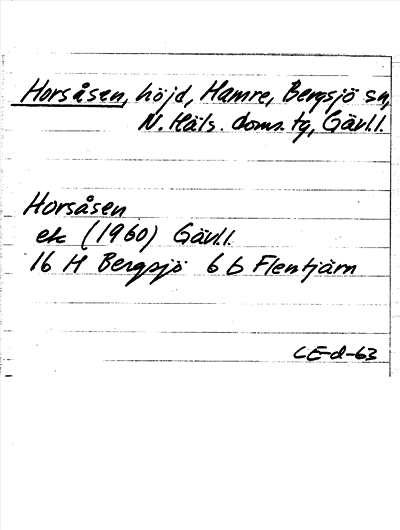 Horsåsen, höjd, Hamre, Bergsjö sn,
N. Häls. doms. tg, Gävl.l.
Horsåsen
ek (1960) Gävl.l.
16 H Bergsjö 6 b Flentjärn
CE-d-63